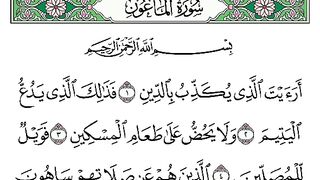 سُورَةُ المَاعُونِ
بِسْمِ اللَّهِ الرَّحْمَٰنِ الرَّحِيمِ
أَرَءَيْتَ الَّذِي يُكَذِّبُ بِالدِّينِ ١ فَذَٰلِكَ الَّذِي يَدُعُّ
الْيَتِيمَ ٢ وَلَا يَحُضُّ عَلَىٰ طَعَامِ الْمِسْكِينِ ٣ فَوَيْلٌ
لِّلْمُصَلِّينَ ٤ الَّذِينَ هُمْ عَن صَلَاتِهِمْ سَاهُونَ